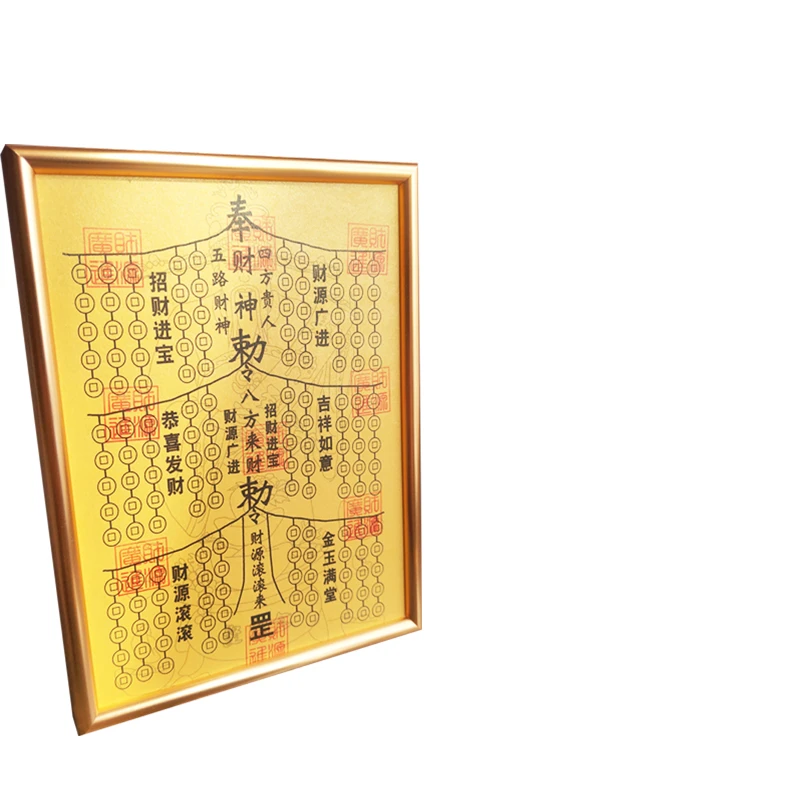 奉
财神
五路财神
四方贵人
招财进宝
财源广进
勅令
八方来财
财源广进
招财进宝
恭喜发财
吉祥如意
勅令
财源滚滚来
罡
财源滚滚
金玉满堂
財源廣進
財源廣進
財源廣進
財源廣進
財源廣進
財源廣進
財源廣進